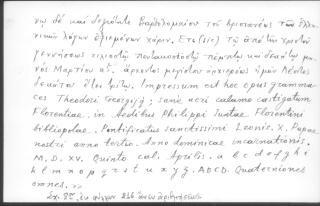 νῷ δὲ καὶ δεξιότητι Βαρθολομαίου τοῦ
λόγων ἐφιεμένων χάριν. Ετει (sic) τῷ ἀπὸ τῆς χριστοῦ
γεννήσεως χιλιοστῷ πεντακοσιοστῷ πέμπτῳ καὶ δεκάτῳ μη-
νὸς Μαρτίου
δεκάτου ἔτει τρίτῳ. Impressum est hoc opus gramma
ces Theodori sane acri calamo castigatum
Florentiae. in Aedibus Philippi Iuntae Florentini
bibliopolae. Pontificatus sanctissimi Leonis. X. Papae
nostri anno tertio. Anno dominicae incarnationis.
M.D.XV. Quinto cal. Aprilis. a b c d e f g h i
k l m n o p q r s t u x y z. ABCD. Quaterniones
omnes. »